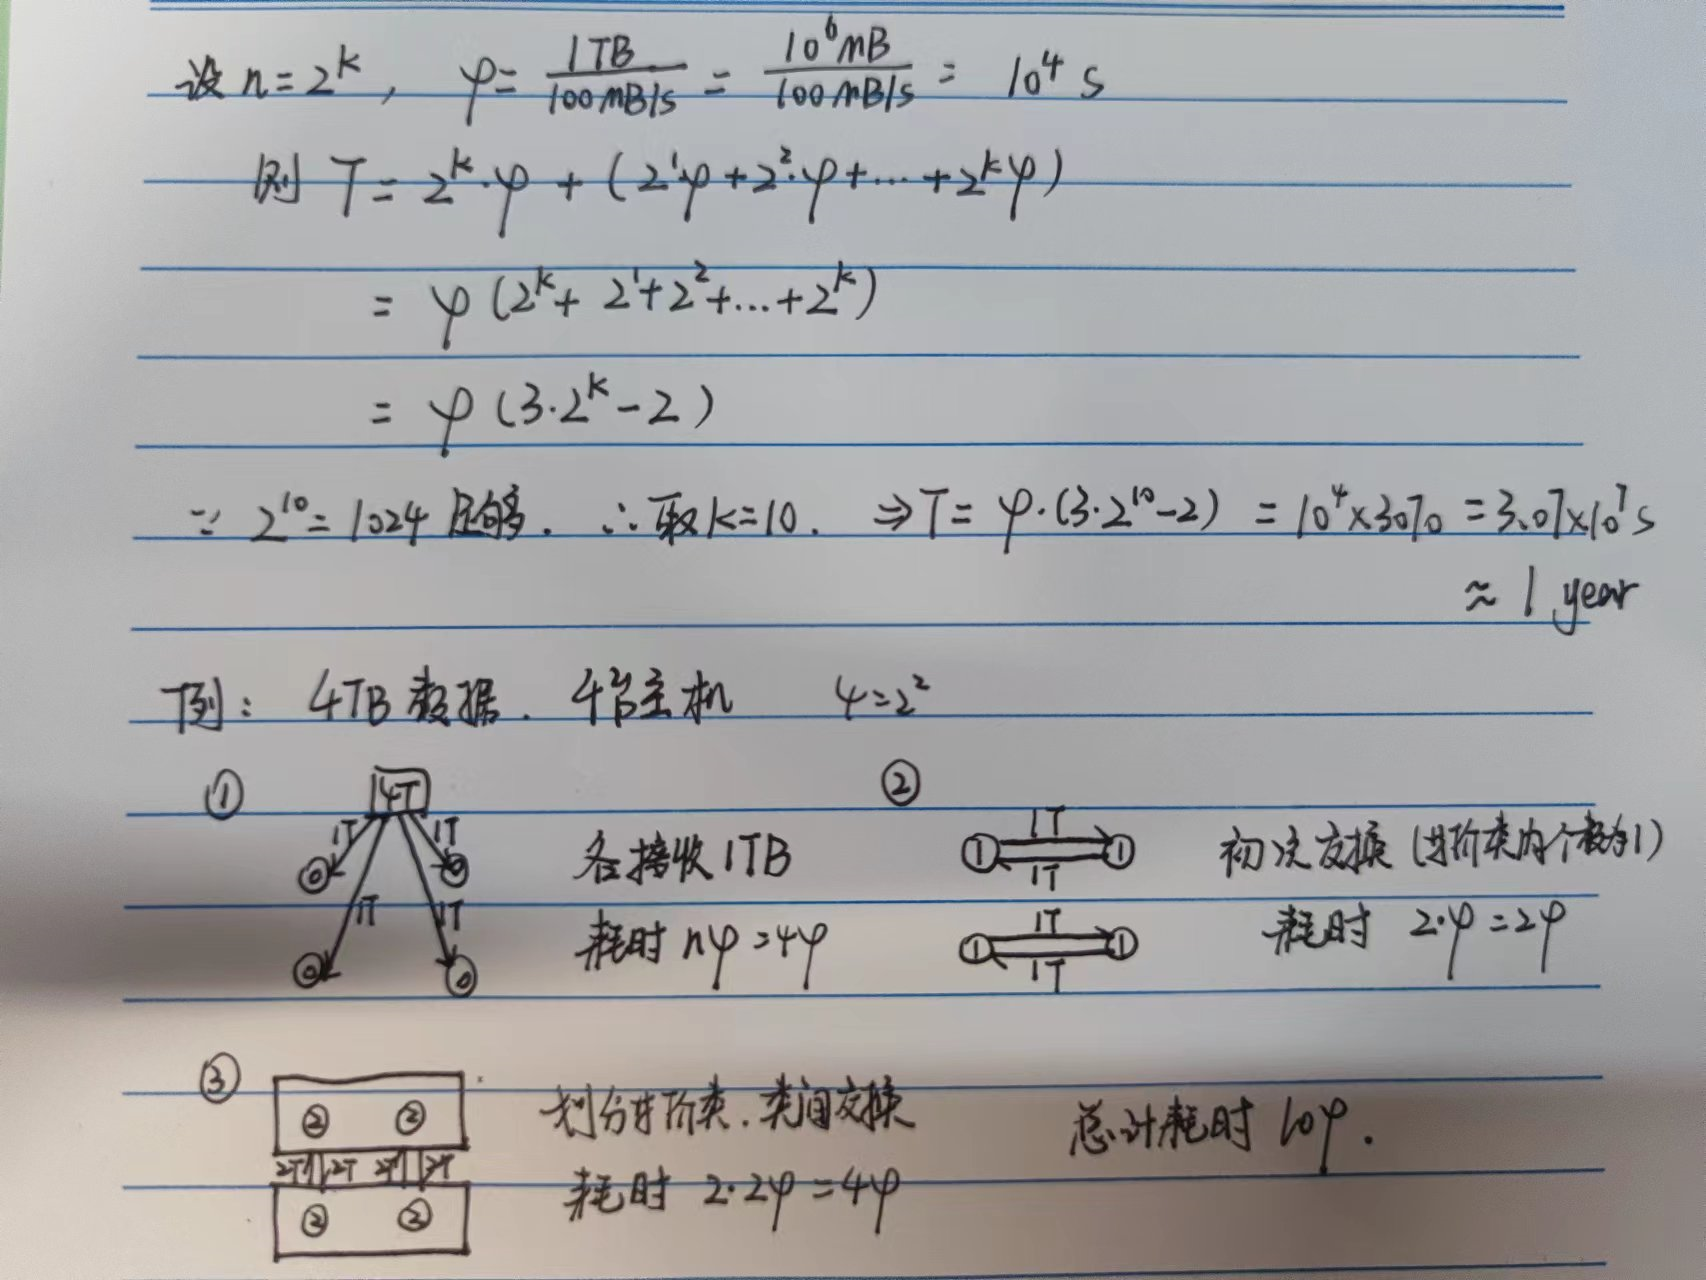 设 n=2^k, φ= 1TB/100MB/s = 10^6MB/100MB/s = 10^4 s
则 T= 2^k·φ + (2^1φ+2^2·φ+…+2^kφ)
= φ(2^k+ 2^1+2^2+…+2^k)
= φ(3·2^k-2)
∵ 2^10=1024 足够. ∴取k=10. ⇒T= φ·(3·2^10-2) = 10^4×3070 =3.07×10^7 s
≈ 1 year
例: 4TB数据. 4台主机 4=2^2
① ②
4T
1T 1T 1T 1T
0 0 0 0
各接收1TB
耗时 nφ=4φ
1 1T 1T 1
1 1T 1T 1
初次交换 (等价类内个数为1)
耗时 2·φ=2φ
③
2 2
2T 2T 2T 2T
2 2
划分等价类. 类间交换
耗时 2·2φ=4φ
总计耗时 10φ.